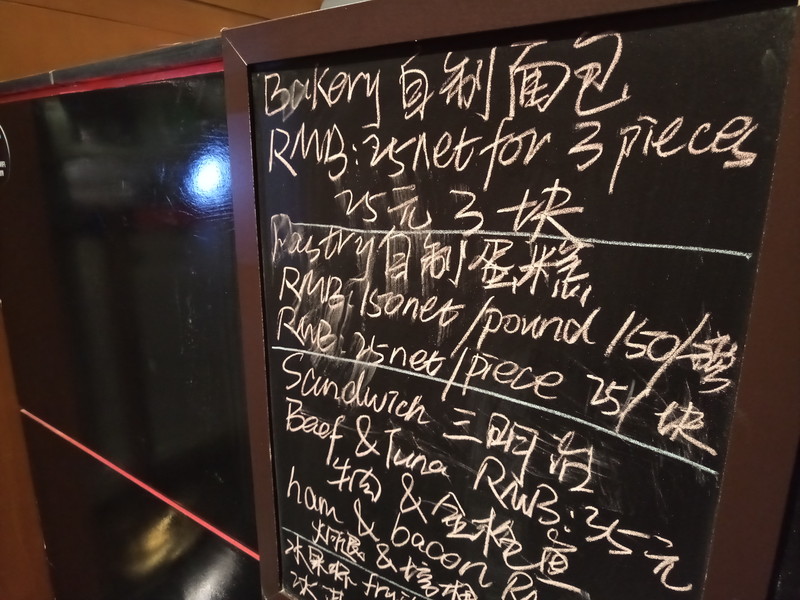 Bakery 自制面包
RMB:25net for 3 pieces
25元 3 块
Pastry 自制蛋糕
RMB:150net/pound 150/磅
RMB:25net/piece 25/块
Sandwich 三明治
Beef & Tuna RMB:35元
牛肉 & 金枪鱼
ham & bacon R
火腿 & 培根
水果杯 fruit
冰